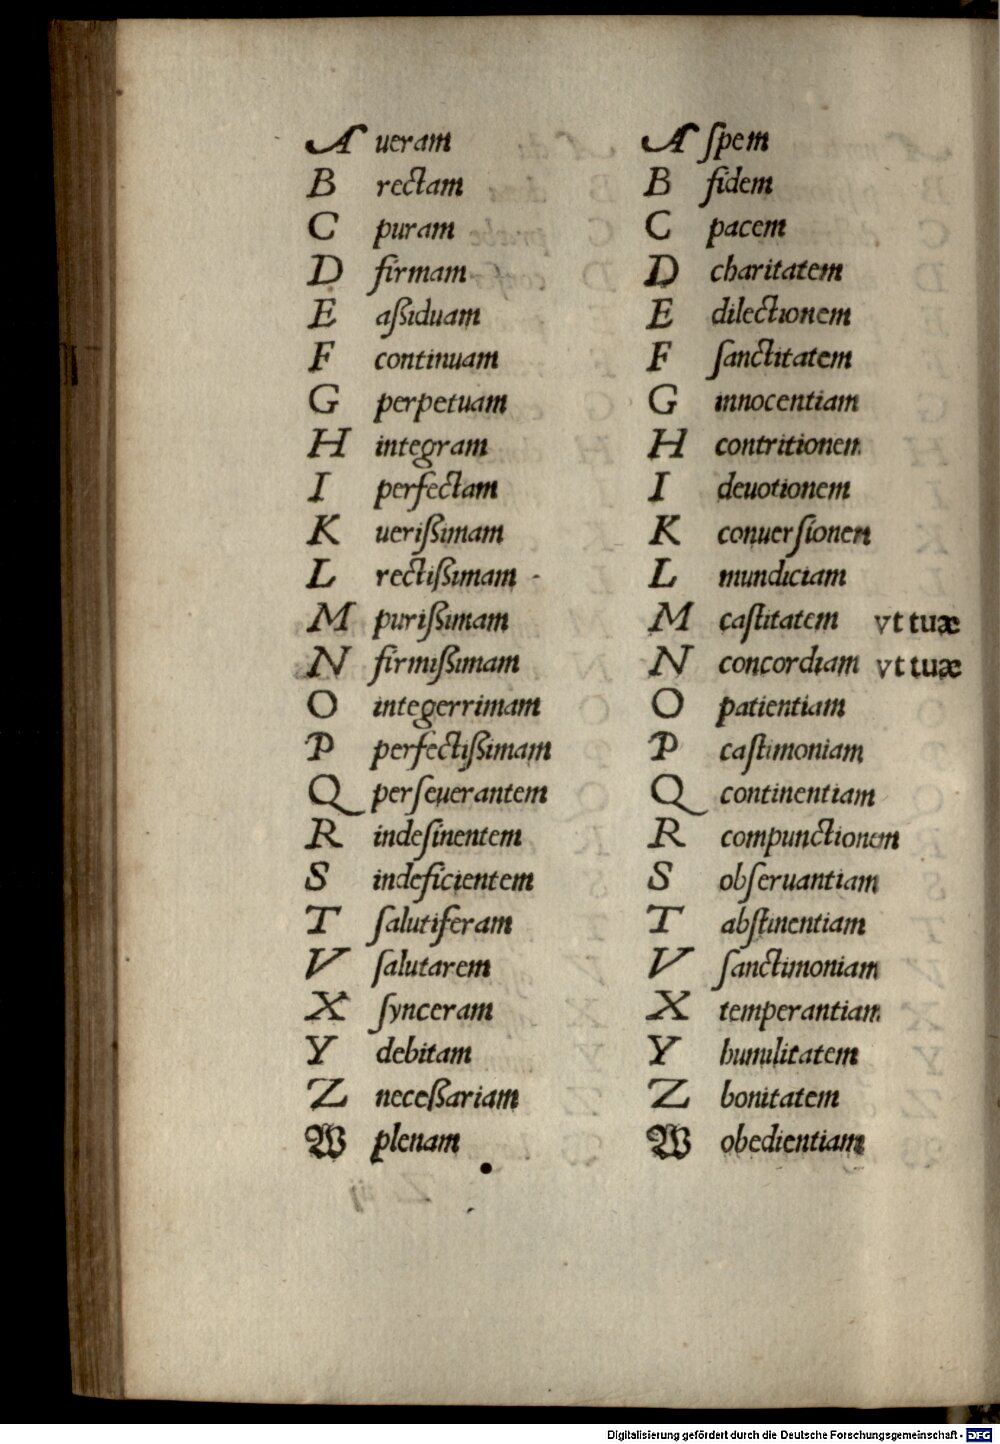 A ueram A ſpem
B rectam B fidem
C puram C pacem
D firmam D charitatem
E aßiduam E dilectionem
F continuam F ſanctitatem
G perpetuam G innocentiam
H integram H contritionem
I perfectam I deuotionem
K uerißimam K conuerſionem
L rectißimam L mundiciam
M purißimam M caſtitatem vt tuæ
N firmißimam N concordiam vt tuæ
O integerrimam O patientiam
P perfectißimam P caſtimoniam
Q perſeuerantem Q continentiam
R indeſinentem R compunctionem
S indeficientem S obſeruantiam
T ſalutiferam T abſtinentiam
V ſalutarem V ſanctimoniam
X ſynceram X temperantiam
Y debitam Y humilitatem
Z neceßariam Z bonitatem
W plenam W obedientiam
Digitalisierung gefördert durch die Deutsche Forschungsgemeinschaft - DFG